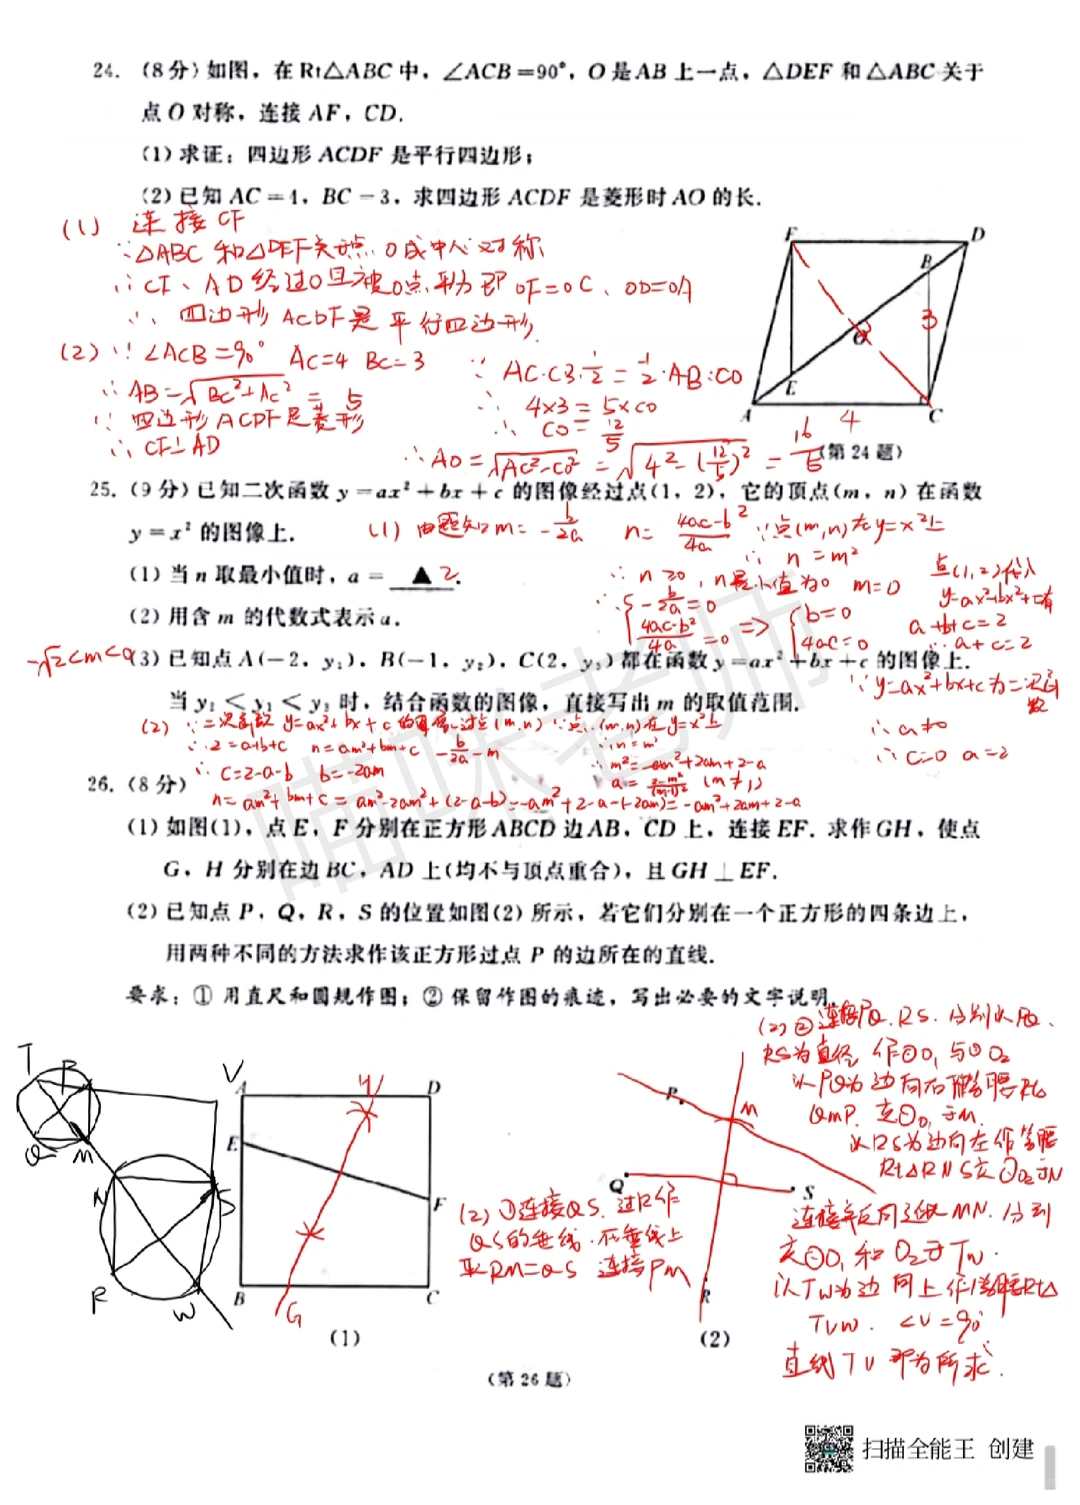 24. (8分)如图,在Rt△ABC中,∠ACB=90°,O是AB上一点,△DEF和△ABC关于
点O对称,连接AF,CD.
(1)求证:四边形ACDF是平行四边形;
(2)已知AC=4,BC=3,求四边形ACDF是菱形时AO的长.
(1) 连接CF
∵△ABC和△DEF关于点O成中心对称
∴CF、AD经过O且被O点平分即OF=OC、OD=OA
∴四边形ACDF是平行四边形.
(2)∵∠ACB=90° AC=4 BC=3
∴AB=√BC²+AC²=5
∵四边形ACDF是菱形
∴CF⊥AD
∵AC·CB·1/2=1/2·AB·CO
∴4×3=5×CO
∴CO=12/5
∴AO=√AC²-CO²=√4²-(12/5)²=16/5
F
D
B
O
3
E
A
4
C
(第24题)
25. (9分)已知二次函数y=ax²+bx+c的图像经过点(1,2),它的顶点(m,n)在函数
y=x²的图像上.
(1)由题知m=-b/2a n=4ac-b²/4a ∵点(m,n)在y=x²上
∴n=m²
(1)当n取最小值时,a=▲2.
∴n≥0,n最小值为0 m=0
点(1,2)代入
(2)用含m的代数式表示a.
∴{-b/2a=0 4ac-b²/4a=0 => {b=0 4ac=0
a+b+c=2
∴a+c=2
-√2<m<0
(3)已知点A(-2,y₁),B(-1,y₂),C(2,y₃)都在函数y=ax²+bx+c的图像上.
当y₂<y₁<y₃时,结合函数的图像,直接写出m的取值范围.
∵y=ax²+bx+c为二次函数
∴a≠0
∴c=0 a=2
(2)∵二次函数y=ax²+bx+c的图像过点(m,n)∵点(m,n)在y=x²上
∴2=a+b+c n=am²+bm+c -b/2a=m
∴n=m²
∴c=2-a-b b=-2am
m²=-am²+2am+2-a
a=2-m²/(m-1)² (m≠1)
n=am²+bm+c=am²-2am²+(2-a-b)=-am²+2-a-(-2am)=-am²+2am+2-a
26. (8分)
(1)如图(1),点E,F分别在正方形ABCD边AB,CD上,连接EF.求作GH,使点
G,H分别在边BC,AD上(均不与顶点重合),且GH⊥EF.
(2)已知点P,Q,R,S的位置如图(2)所示,若它们分别在一个正方形的四条边上,
用两种不同的方法求作该正方形过点P的边所在的直线.
要求:①用直尺和圆规作图;②保留作图的痕迹,写出必要的文字说明.
(2)②连接PQ、RS.分别以PQ、
RS为直径作⊙O₁与⊙O₂
以PQ为边向右作等腰Rt△
QMP.交⊙O₁于M.
以RS为边向左作等腰
Rt△RNS交⊙O₂于N
连接并反向延长MN.分别
交⊙O₁和O₂于T、W.
以TW为边向上作等腰Rt△
TVW.∠V=90°
直线TV即为所求.
T
P
Q
M
N
S
R
W
V
A
H
D
E
F
B
G
C
(1)
(2)①连接QS.过R作
QS的垂线.在垂线上
取RM=QS 连接PM
P
M
Q
S
R
(2)
(第26题)
喵咪老师
扫描全能王 创建